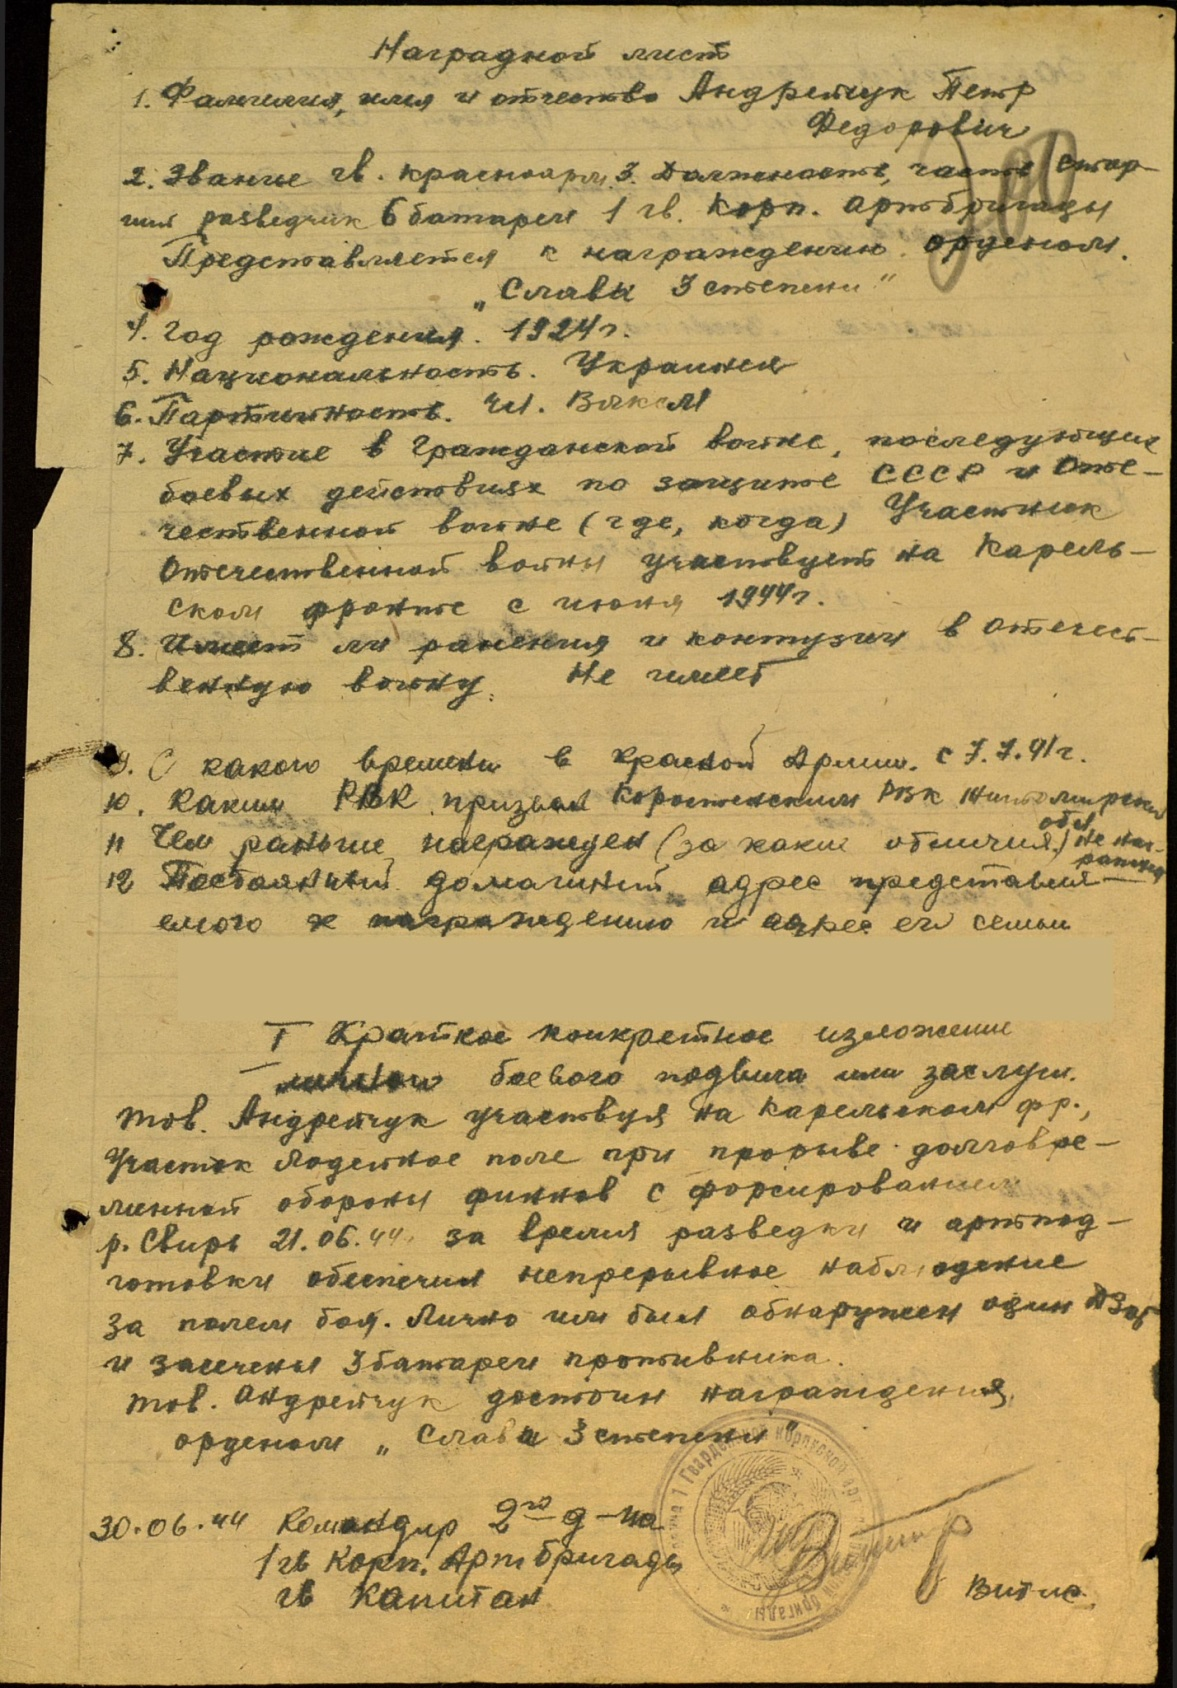 Наградной лист
1. Фамилия, имя и отчество Андрейчук Петр
Федорович
2. Звание гв. красноарм. 3. Должность, часть Стар-
ший разведчик 6 батареи 1 гв. Корп. Артбригады
Представляется к награждению орденом.
"Слава 3 степени"
4. Год рождения. 1924 г.
5. Национальность. Украинец
6. Партийность. Чл. ВЛКСМ
7. Участие в Гражданской войне, последующих
боевых действиях по защите СССР и Оте-
чественной войне (где, когда) Участник
Отечественной войны участвует на Карель-
ском фронте с июня 1944 г.
8. Имеет ли ранения и контузии в отечест-
венную войну. Не имеет
9. С какого времени в Красной Армии. с 7.7.41 г.
10. Каким РВК призван Коростенским РВК Житомирской
обл.
11 Чем раньше награжден (за какие отличия) Не наг-
ражден
12 Постоянный домашний адрес представля-
емого к награждению и адрес его семьи
I Краткое конкретное изложение
личного боевого подвига или заслуги.
Тов. Андрейчук участвуя на Карельском фр.,
Участок Лодейное поле при прорыве долговре-
менной обороны финнов с форсированием
р. Свирь 21.06.44. за время разведки и артпод-
готовки обеспечил непрерывное наблюдение
за полем боя. Лично им был обнаружен один ДЗОТ
и засечены 3 батареи противника.
Тов. Андрейчук достоин награждения,
орденом "Слава 3 степени"
30.06.44 Командир 2го д-на
1 гв Корп. Арт бригады
гв Капитан